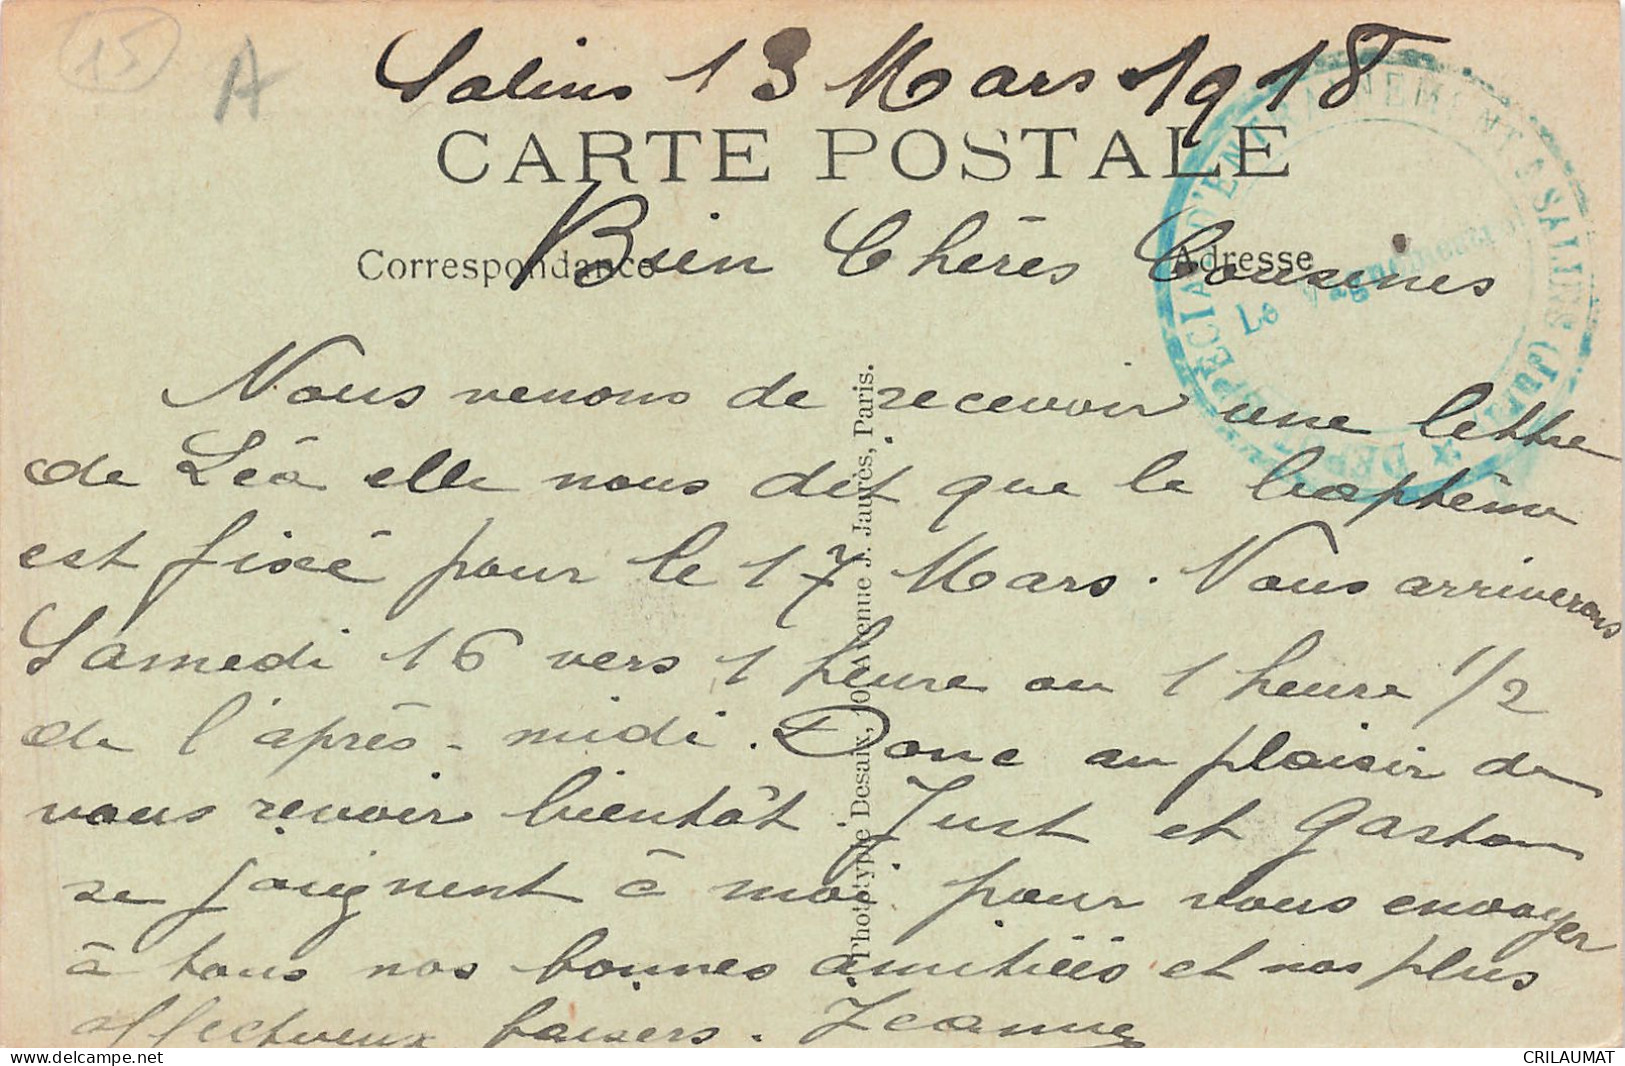 15
A
Salins 13 Mars 1918
CARTE POSTALE
Correspondance
Adresse
Bien Chères Cousines
Nous venons de recevoir une lettre
de Léa elle nous dit que le baptême
est fixé pour le 17 Mars. Nous arriverons
Samedi 16 vers 1 heure ou 1 heure 1/2
de l'après-midi. Donc au plaisir de
vous revoir bientôt. Just et Gaston
se joignent à moi pour vous envoyer
à tous nos bonnes amitiées et nos plus
affectueux baisers. Jeanne
Phototypie Desaix, Avenue J. Jaurès, Paris.
DEPOT SPÉCIAL D'ENTRAINEMENT SALINS (Jura)
Le Vaguemestre
CRILAUMAT